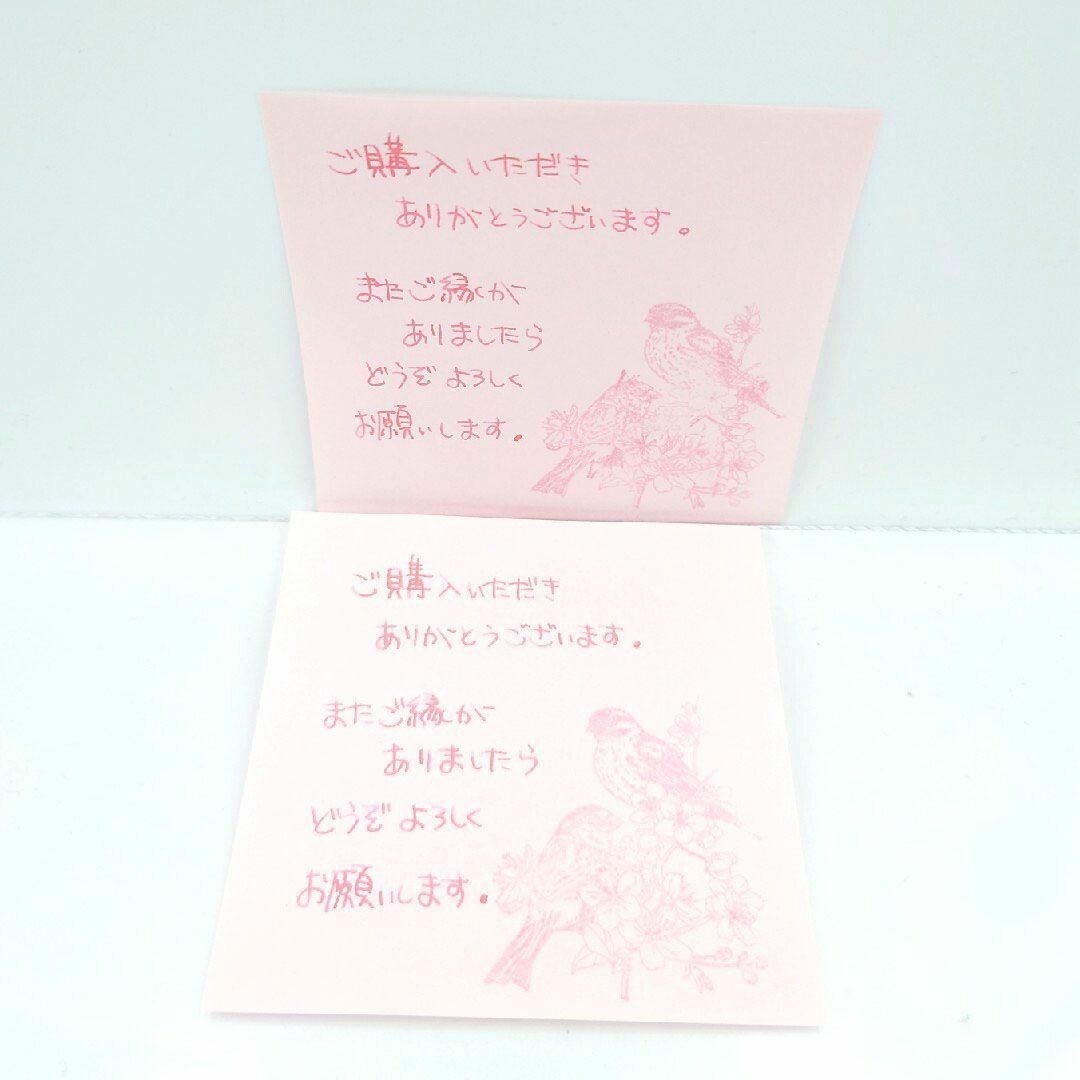 ご購入いただき
ありがとうございます。
またご縁が
ありましたら
どうぞよろしく
お願いします。
ご購入いただき
ありがとうございます。
またご縁が
ありましたら
どうぞよろしく
お願いします。